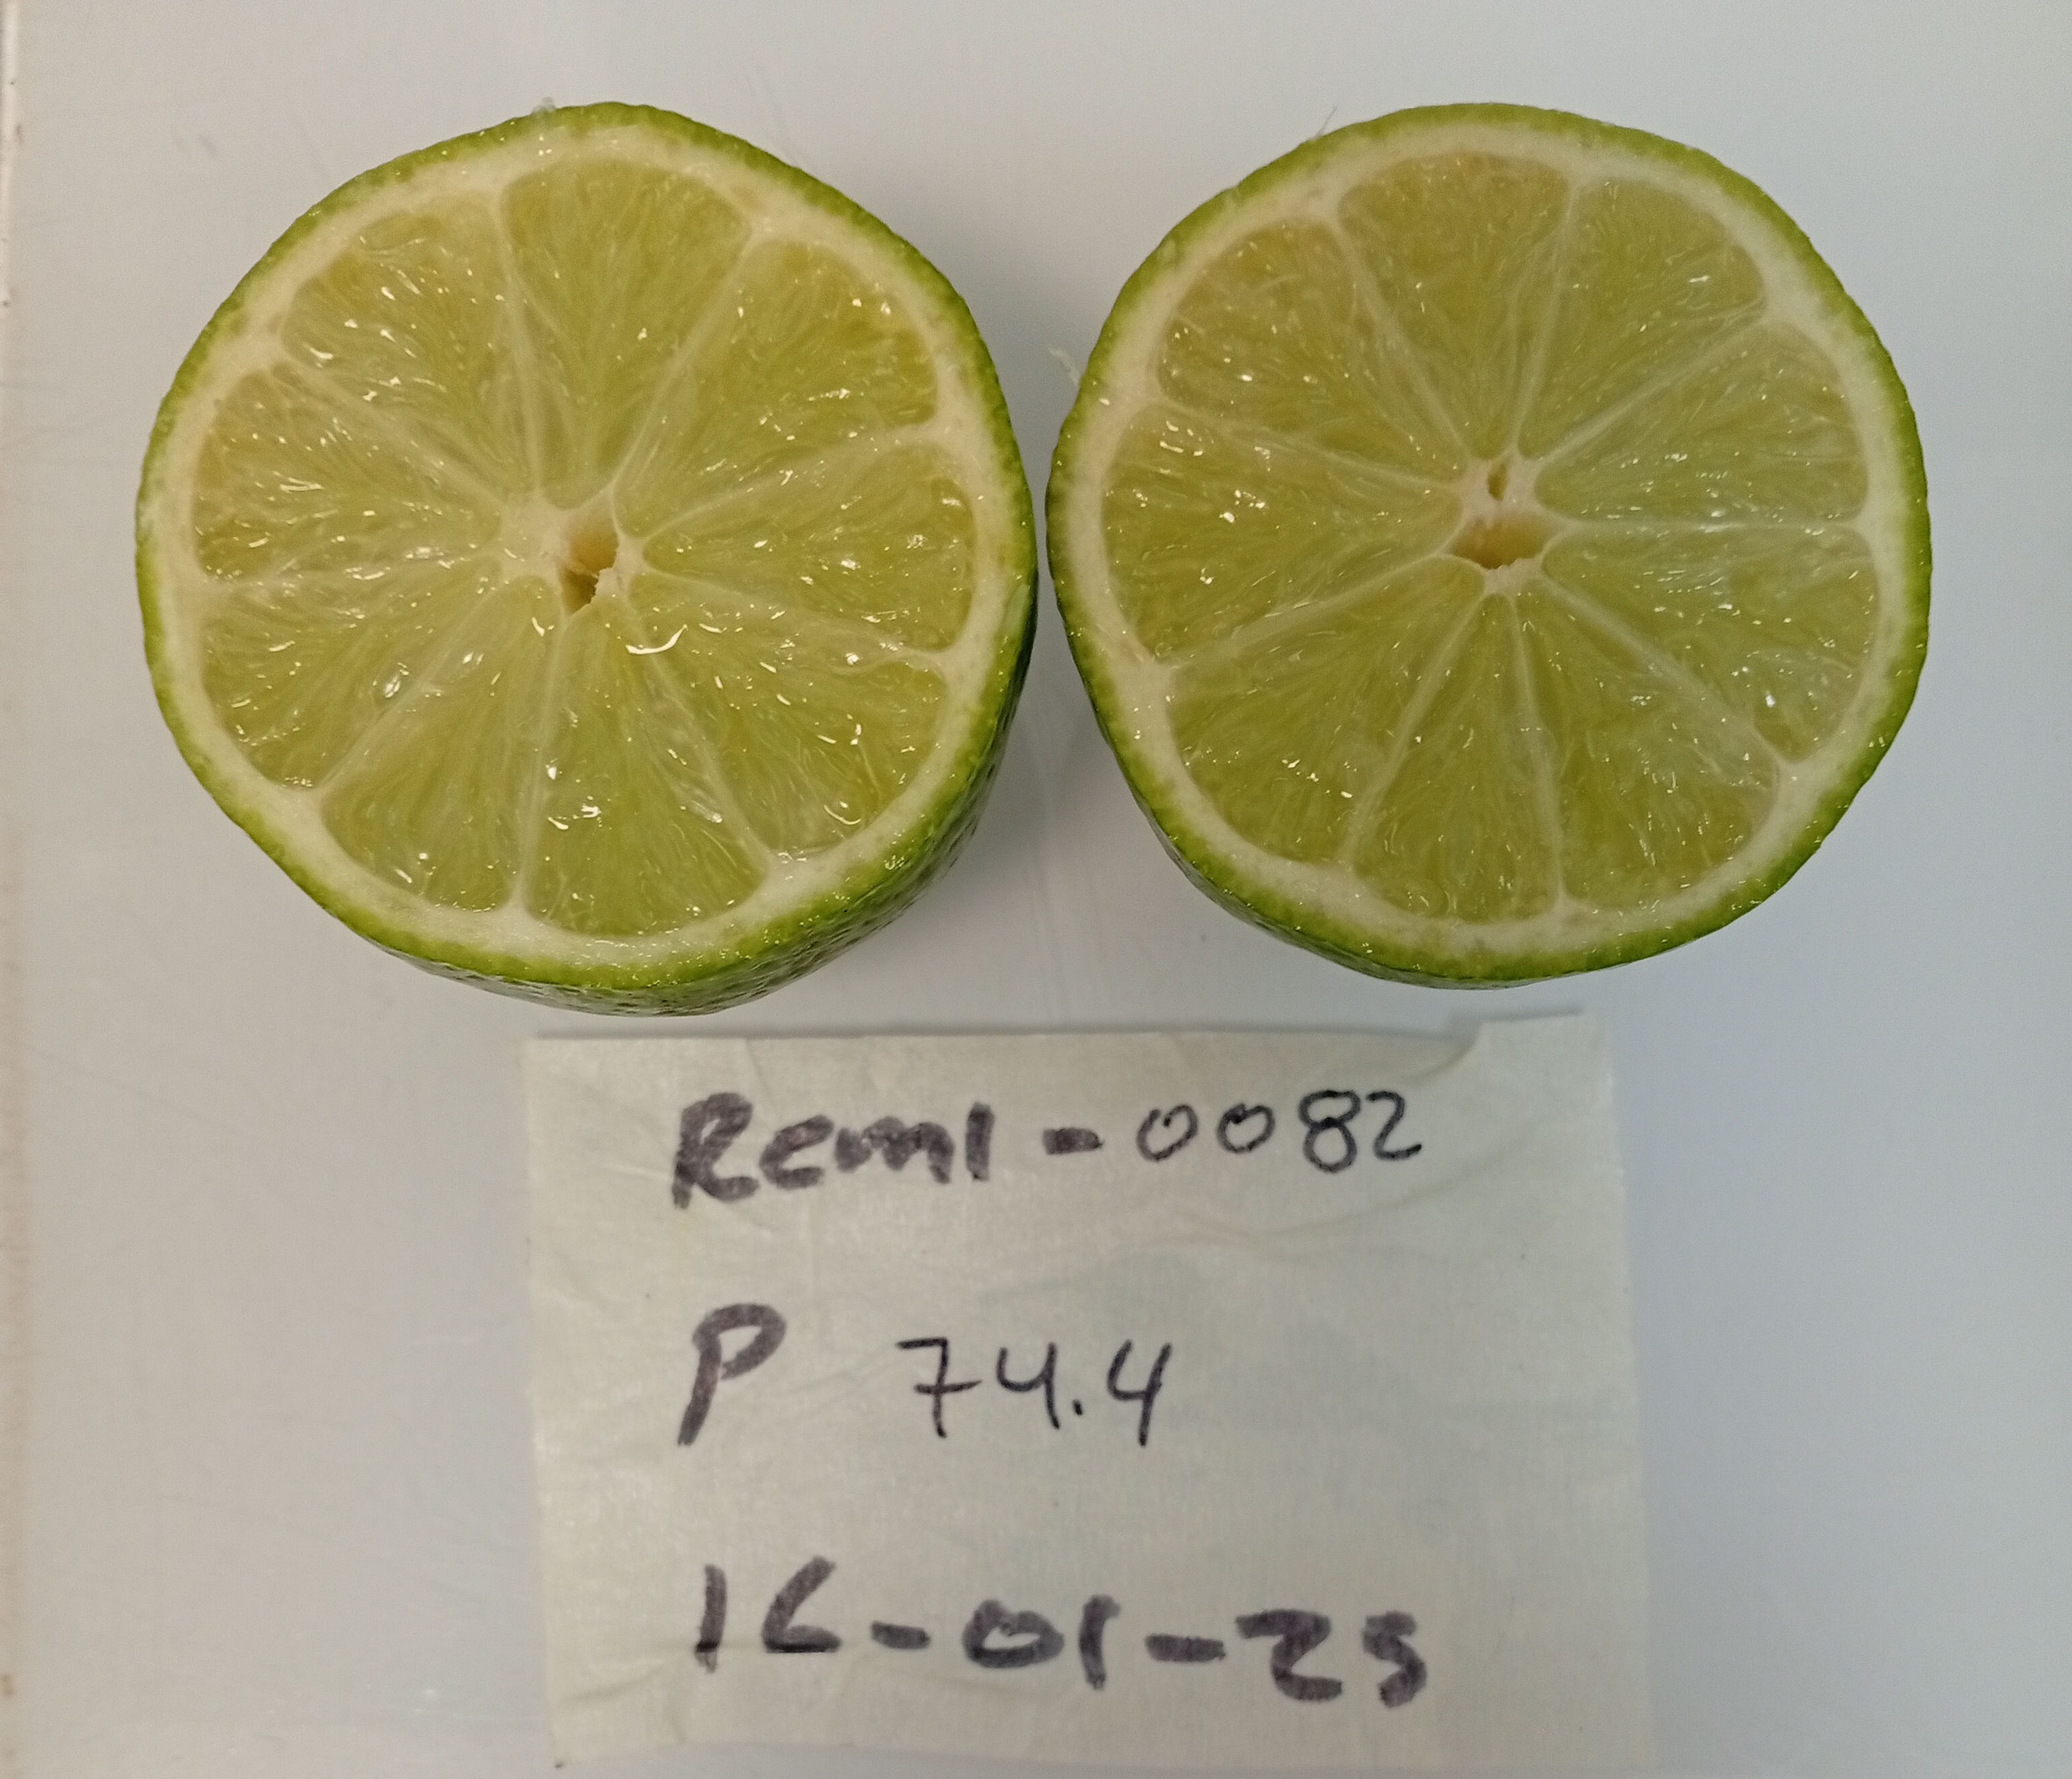 Reml-0082
P 74.4
16-01-25